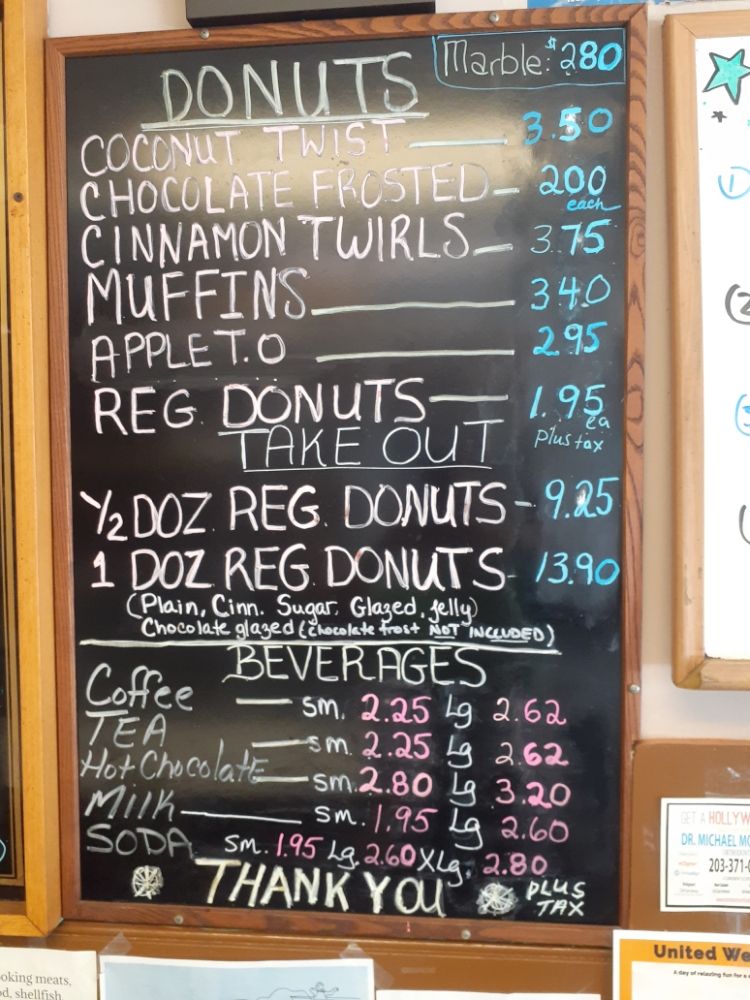 DONUTS
Marble: $2.80
COCONUT TWIST 3.50
CHOCOLATE FROSTED 200
each
CINNAMON TWIRLS 3.75
MUFFINS 340
APPLE T.O 2.95
REG. DONUTS 1.95
ea
plus tax
TAKE OUT
1/2 DOZ. REG. DONUTS - 9.25
1 DOZ. REG. DONUTS - 13.90
(Plain, Cinn. Sugar, Glazed, Jelly)
Chocolate glazed (chocolate frost NOT INCLUDED)
BEVERAGES
Coffee sm. 2.25 Lg 2.62
TEA sm. 2.25 Lg 2.62
Hot Chocolate sm. 2.80 Lg 3.20
Milk sm. 1.95 Lg 2.60
SODA sm. 1.95 Lg. 2.60 XLg. 2.80
THANK YOU
PLUS
TAX
GET A HOLLYW
DR. MICHAEL MO
203-371-
United We
A day of relaxing fun for a
ooking meats,
od, shellfish,